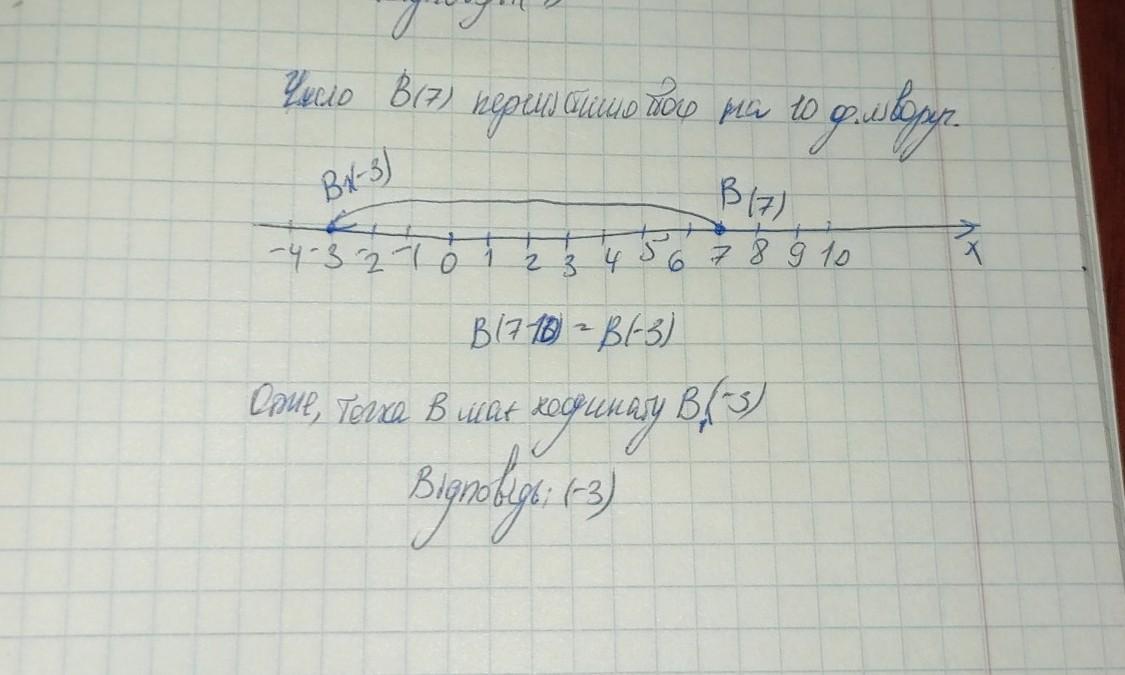 Число B(7) перемістимо його на 10 од. ліворуч.
B₁(-3)
B(7)
-4 -3 -2 -1 0 1 2 3 4 5 6 7 8 9 10
x
B(7-10) = B(-3)
Отже, точка B має координату B₁(-3)
Відповідь: (-3)